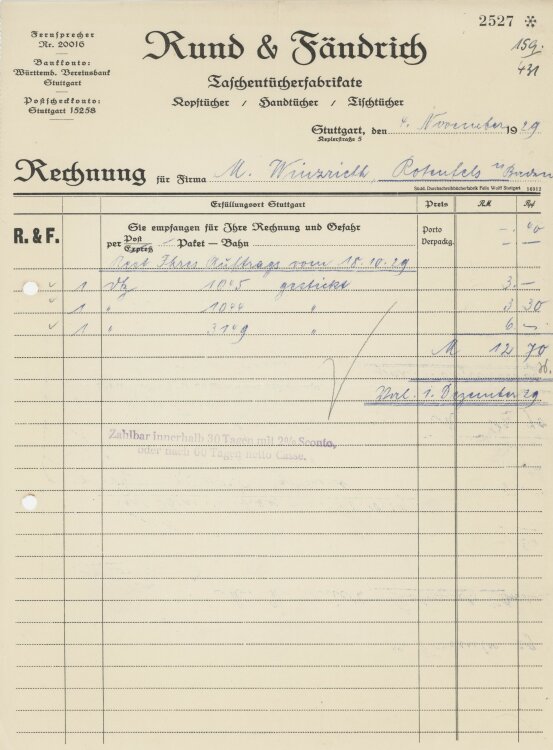 Fernsprecher
Nr. 20016
Bankkonto:
Württemb. Vereinsbank
Stuttgart
Postscheckkonto:
Stuttgart 15258
2527 *
159
431
Rund & Fändrich
Taschentücherfabrikate
Kopftücher / Handtücher / Tischtücher
Stuttgart, den 4. November 1929
Keplerstraße 5
Rechnung für Firma M. Winzrieth, Rotenfels in Baden
Südd. Durchschreibbücherfabrik Felix Wolff Stuttgart 16912
Erfüllungsort Stuttgart Preis RM Rpf
R. & F.
Sie empfangen für Ihre Rechnung und Gefahr
per Post Express / Paket – Bahn
Porto -. 40
Verpackg. -. —
Rest Ihres Auftrags vom 18.10.29
1 Dtz 1045 gestickt 3. —
1 " 1044 " 3 30
1 " 3149 " 6 —
M 12 70
Val. 1. Dezember 29
Zahlbar innerhalb 30 Tagen mit 2% Sconto,
oder nach 60 Tagen netto Casse.